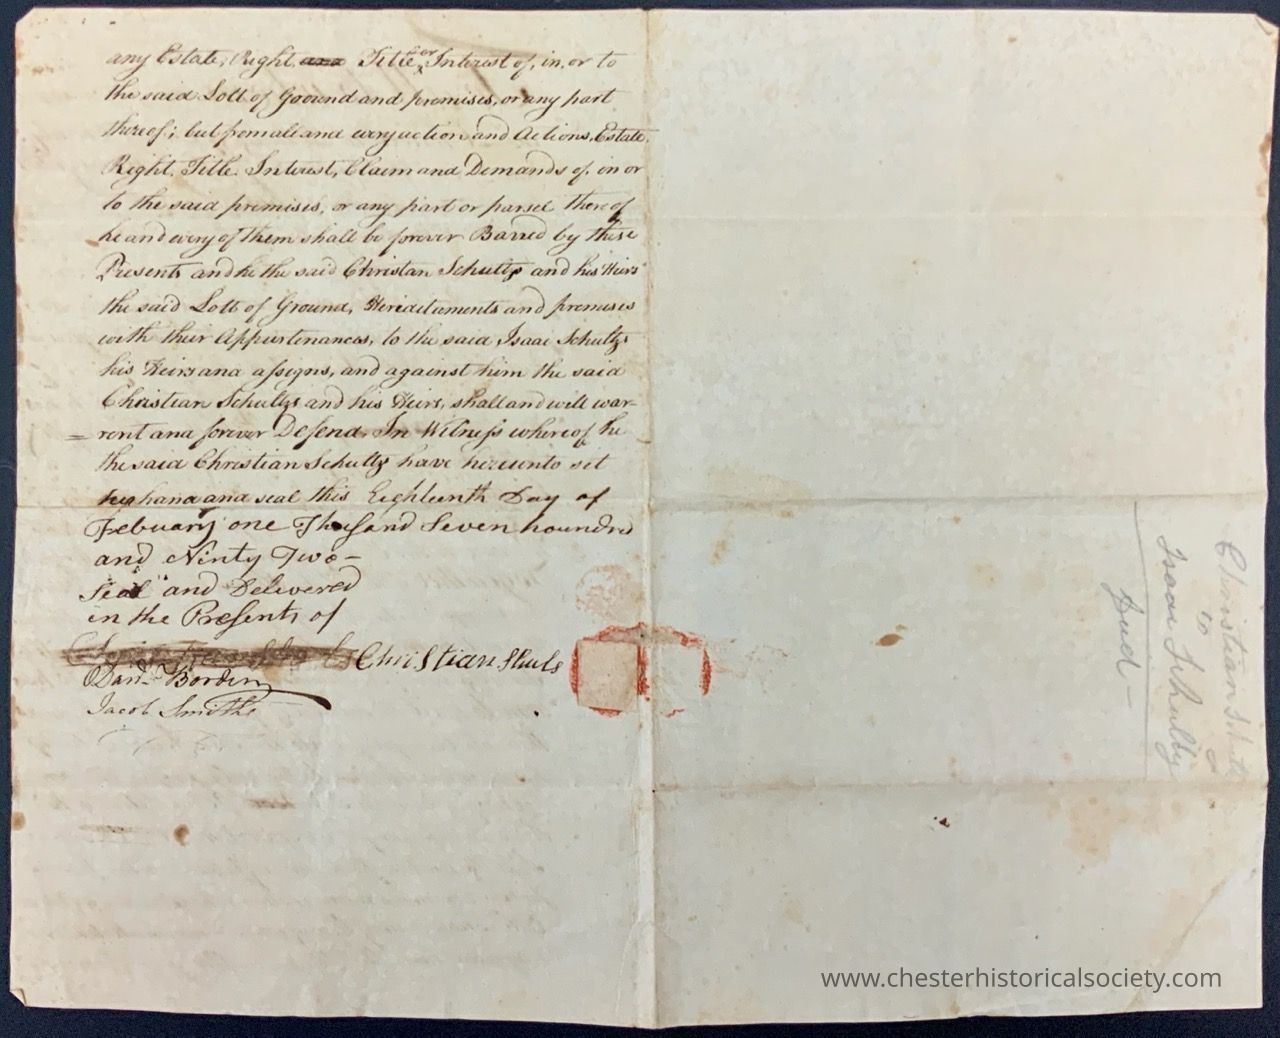 any Estate, Right and Title or Interest of, in, or to
the said Lott of Ground and premises, or any part
thereof; but from all and every action and Actions, Estate,
Right, Title, Interest, Claim and Demands of, in or
to the said premises, or any part or parsel thereof
he and every of them shall be forever Barred by these
Presents and he the said Christan Schultz and his Heirs
the said Lott of Ground, Hereditaments and premises
with their Appurtenances, to the said Isaac Schultz
his Heirs and assigns, and against him the said
Christian Schultz and his Heirs, shall and will war-
= rent and forever Defend. In Witness whereof he
the said Christian Schultz have hereunto set
hand and seal this Eighteenth Day of
Febuary one Thousand Seven houndred
and Ninty Two –
Seal and Delivered
in the Presents of
Christian Shuls
Dan.. Borden
Jacob Smith
Christian Schultz
to
Isaac Schultz
Deed –
www.chesterhistoricalsociety.com